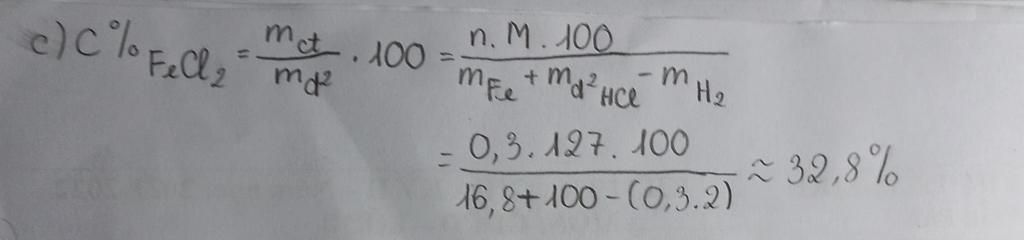 c) C% FeCl₂ = mct / md² . 100 = n. M . 100 / mFe + md²HCl - mH₂
= 0,3. 127. 100 / 16,8+100-(0,3.2) ≈ 32,8%